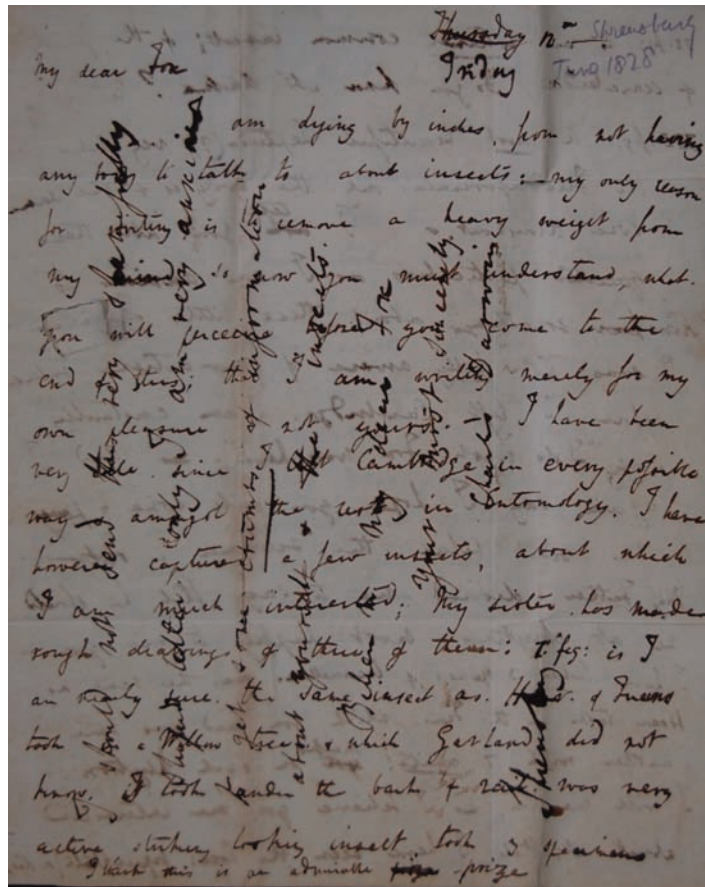 Thursday 12
Shrewsbury
June 1828
Friday
My dear Fox
I am dying by inches, from not having
any body to talk to about insects: — my only reason
for writing is to remove a heavy weight from
my mind, so now you must understand, what
you will perceive before you come to the
end of this; that I am writing merely for my
own pleasure & not yours. — I have been
very idle since I left Cambridge in every possible
way & amongst the rest in Entomology. I have
however captured a few insects, about which
I am much interested; My sister has made
rough drawings of three of them: 1 fig: is I
am nearly sure the same insect as of Queens
took in a Willow tree & which Garland did not
know. I took under the bark & was very
active striking looking insect took 3 specimens
I think this is an admirable prize
I should not send this very shamefully
letter, only I am very anxious
to get some crumbs of information
about yourself & the insects.
Believe me My dear Fox
Yours most sincerely
Charles Darwin